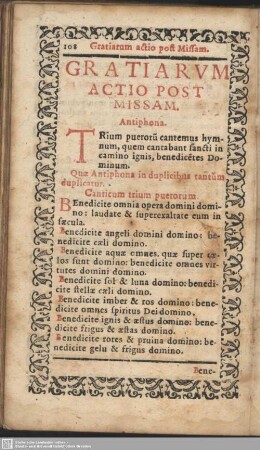 108 Gratiarum actio post Missam.
GRATIARVM
ACTIO POST
MISSAM.
Antiphona.
TRium puerorū cantemus hym-
num, quem cantabant sancti in
camino ignis, benedicētes Do-
minum.
Quæ Antiphona in duplicibus tantùm
duplicatur.
Canticum trium puerorum
BEnedicite omnia opera domini domi-
no: laudate & superexaltate eum in
sæcula.
Benedicite angeli domini domino: be-
nedicite cæli domino.
Benedicite aquæ omnes, quæ super cæ-
los sunt domino: benedicite omnes vir-
tutes domini domino.
Benedicite sol & luna domino: benedi-
cite stellæ cæli domino.
Benedicite imber & ros domino: bene-
dicite omnes spiritus Dei domino.
Benedicite ignis & æstus domino: bene-
dicite frigus & æstas domino.
Benedicite rores & pruina domino: be-
nedicite gelu & frigus domino.
Bene-